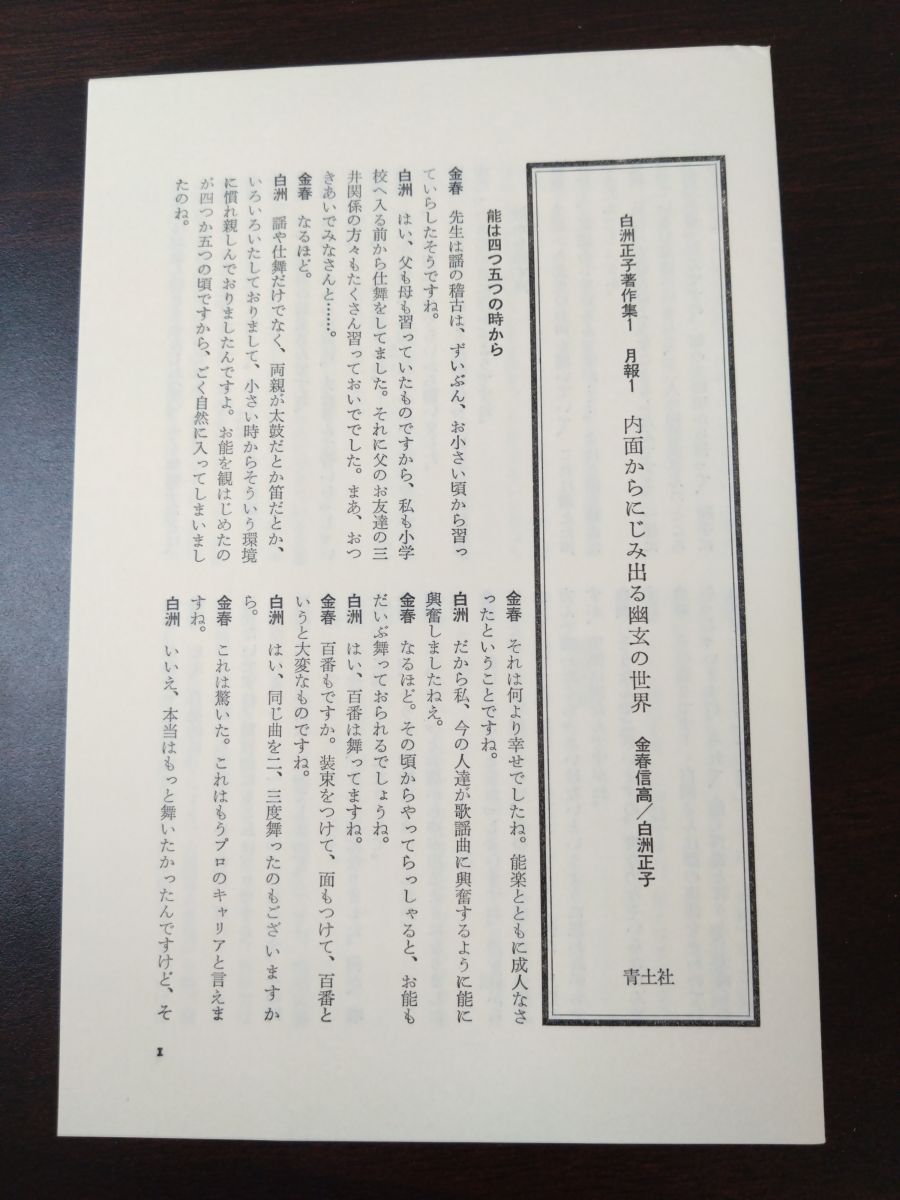 白洲正子著作集1　月報1　内面からにじみ出る幽玄の世界　金春信高／白洲正子　青土社
能は四つ五つの時から
金春　先生は謡の稽古は、ずいぶん、お小さい頃から習っ
ていらしたそうですね。
白洲　はい、父も母も習っていたものですから、私も小学
校へ入る前から仕舞をしてました。それに父のお友達の三
井関係の方々もたくさん習っておいででした。まあ、おつ
きあいでみなさんと……。
金春　なるほど。
白洲　謡や仕舞だけでなく、両親が太鼓だとか笛だとか、
いろいろいたしておりまして、小さい時からそういう環境
に慣れ親しんでおりましたんですよ。お能を観はじめたの
が四つか五つの頃ですから、ごく自然に入ってしまいまし
たのね。
金春　それは何より幸せでしたね。能楽とともに成人なさ
ったということですね。
白洲　だから私、今の人達が歌謡曲に興奮するように能に
興奮しましたねえ。
金春　なるほど。その頃からやってらっしゃると、お能も
だいぶ舞っておられるでしょうね。
白洲　はい、百番は舞ってますね。
金春　百番もですか。装束をつけて、面もつけて、百番と
いうと大変なものですね。
白洲　はい、同じ曲を二、三度舞ったのもございますか
ら。
金春　これは驚いた。これはもうプロのキャリアと言えま
すね。
白洲　いいえ、本当はもっと舞いたかったんですけど、そ
1